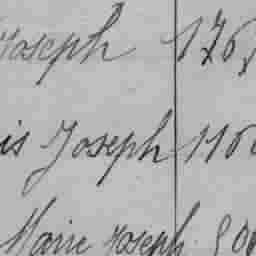 Joseph 176
is Joseph 116
Marie Joseph